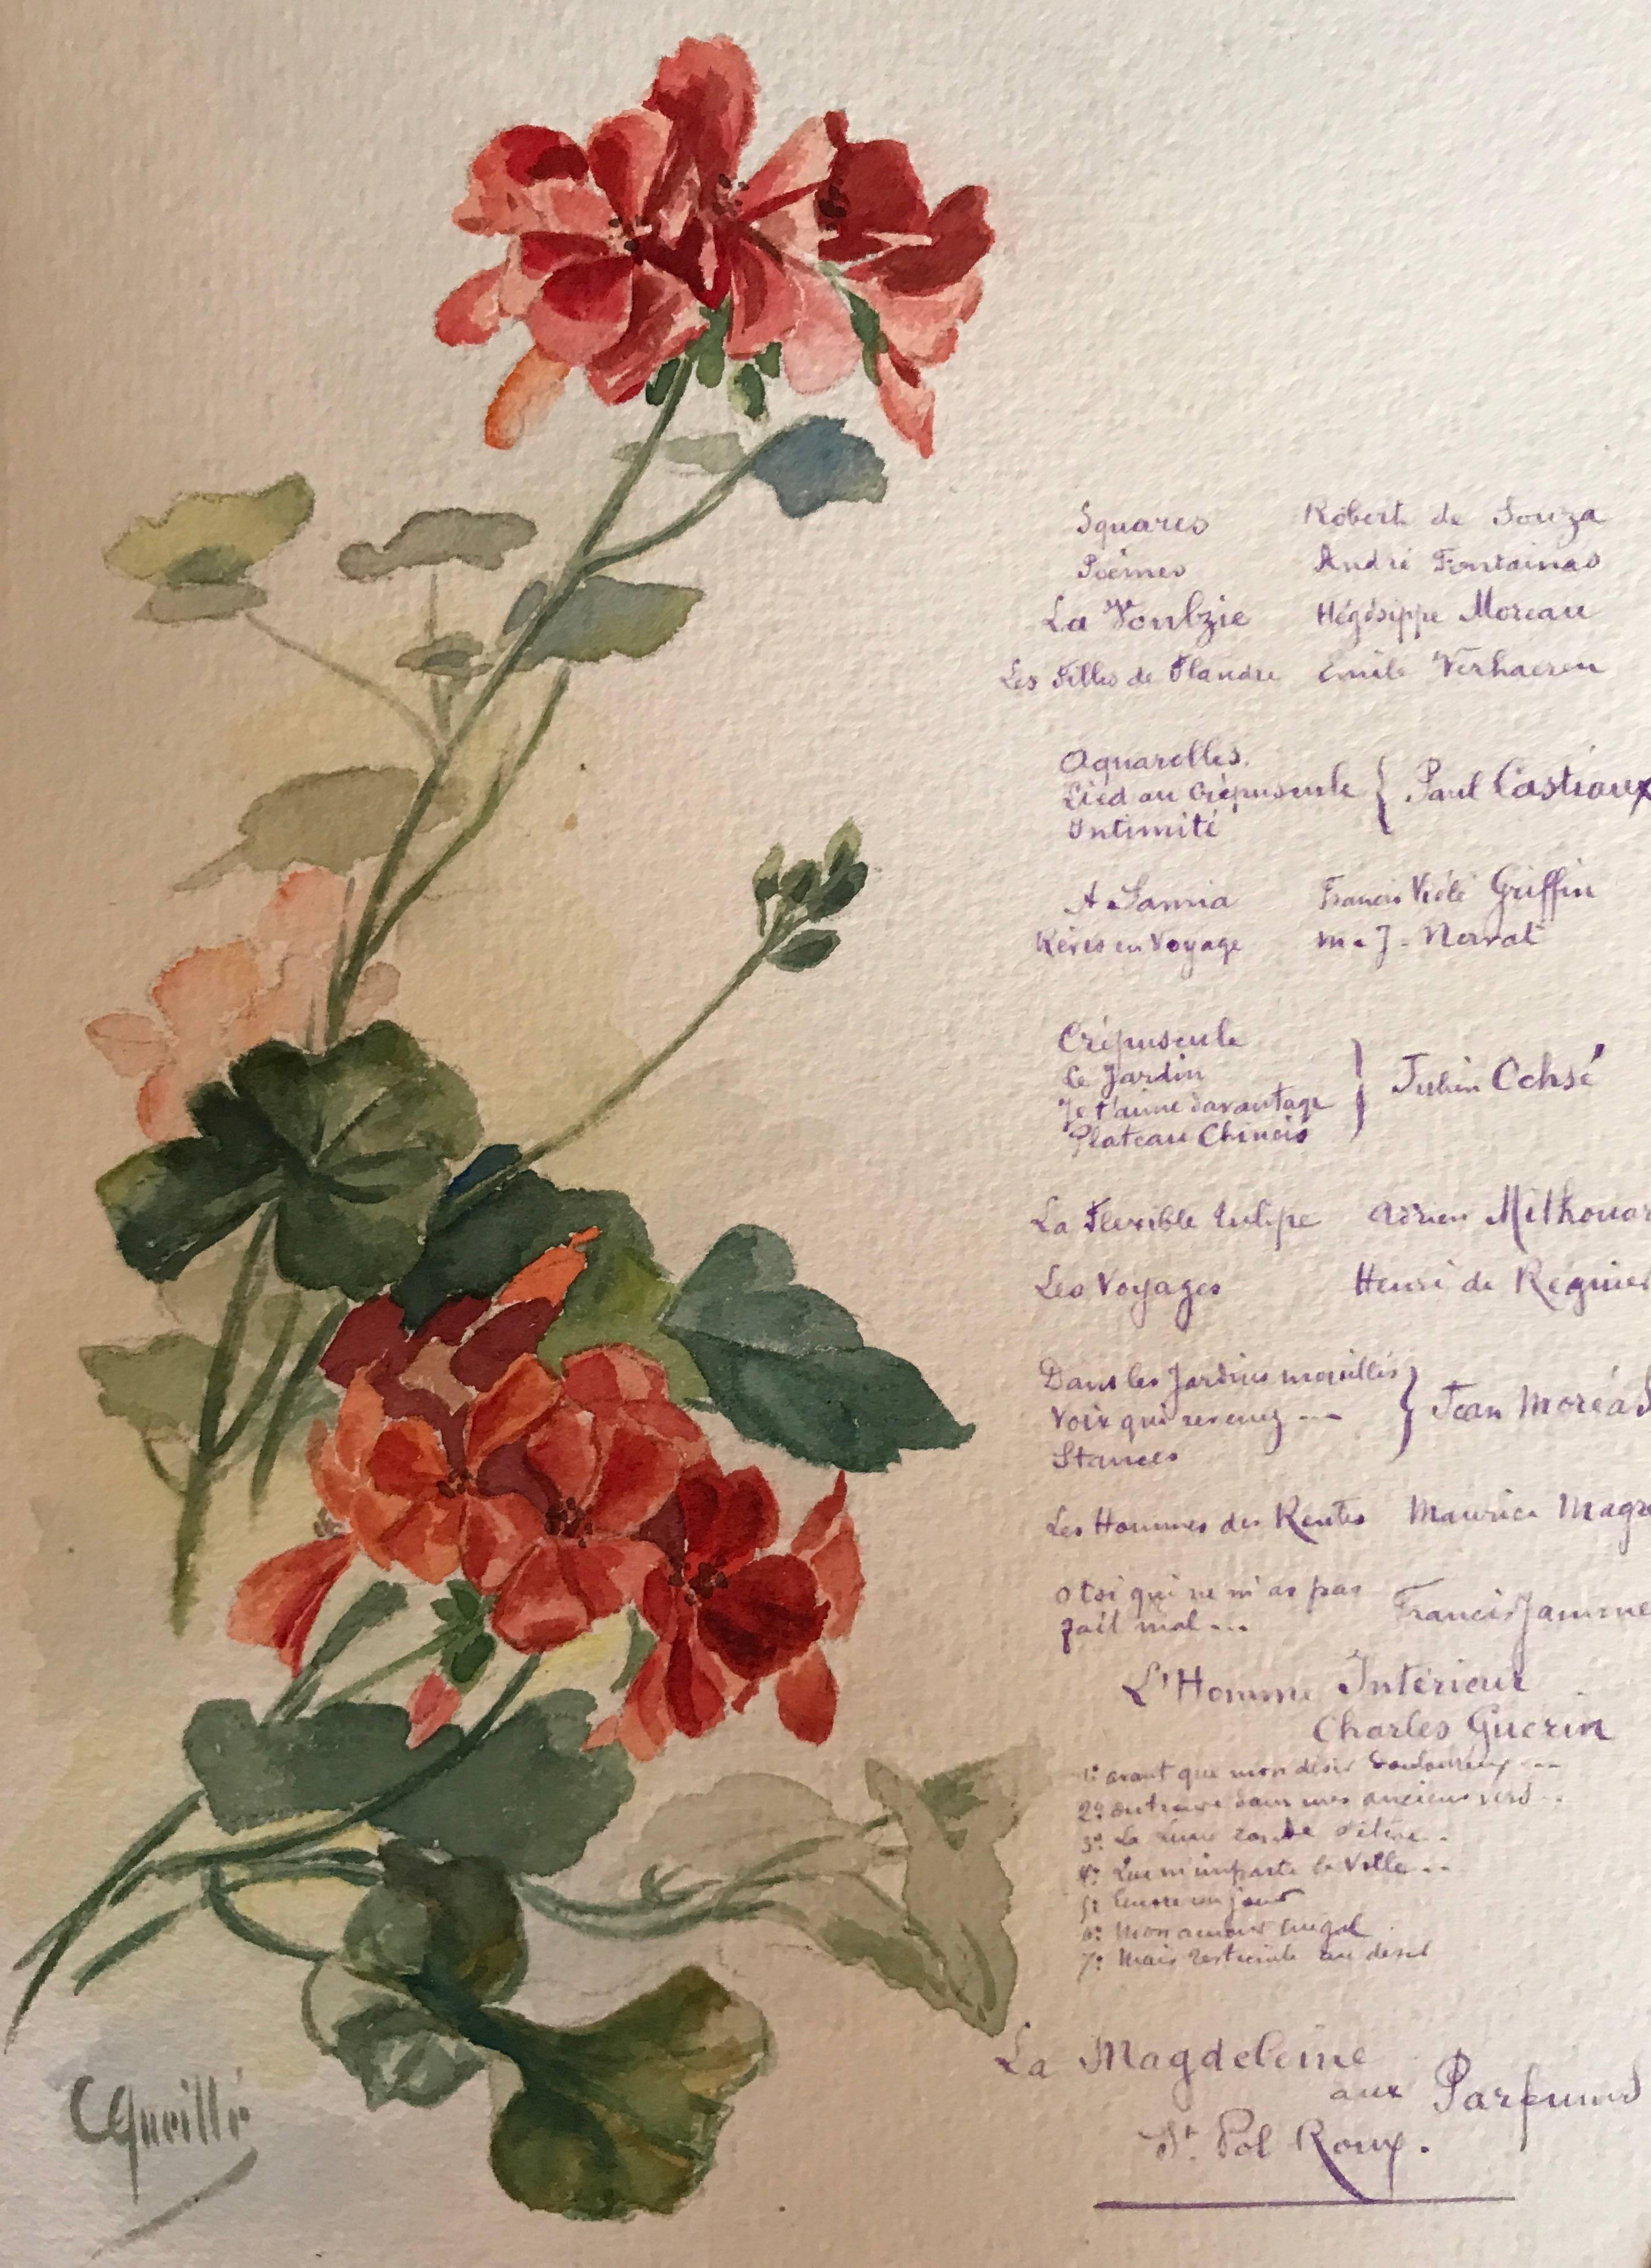 Squares Robert de Souza
Poèmes André Fontainas
La Voulzie Hégésippe Moreau
Les Filles de Flandre Emile Verhaeren
Aquarelles.
Lied au Crépuscule { Paul Castiaux
Intimité
A Samia Francis Viélé Griffin
Rêves en Voyage M. J. Nervat
Crépuscule
Le Jardin } Julien Ochsé
Je t'aime davantage
Plateau Chinois
La Flexible tulipe Adrien Mithouar
Les Voyages Henri de Régnier
Dans les Jardins mouillés
Voix qui revenez --- } Jean Moréas
Stances
Les Hommes des Routes Maurice Magre
O toi qui ne m'as pas Francis Jammes
fait mal ...
L'Homme Intérieur
Charles Guérin
1: avant que mon désir douloureux ---
2: dans mes anciens vers ..
3: La Lune ronde s'élève ..
4: Que m'importe la Ville ..
5: Encore un jour
6: Mon amour
7: Mais au
La Magdeleine
aux Parfums
St. Pol Roux.
CQueillé